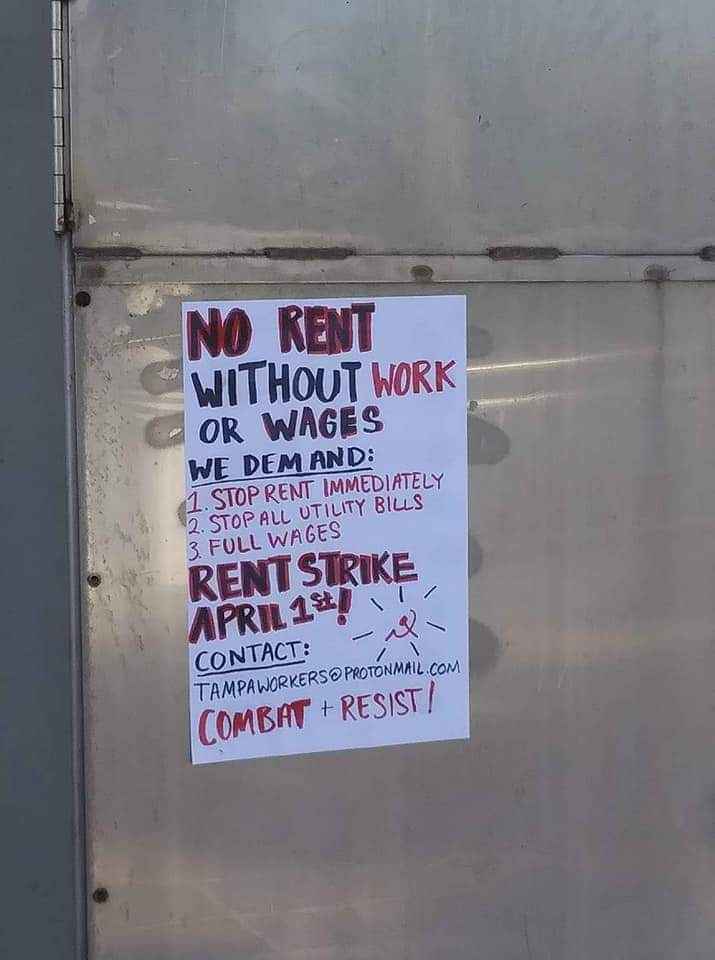 NO RENT
WITHOUT WORK
OR WAGES
WE DEMAND:
1. STOP RENT IMMEDIATELY
2. STOP ALL UTILITY BILLS
3. FULL WAGES
RENT STRIKE
APRIL 1st!
CONTACT:
TAMPAWORKERS@PROTONMAIL.COM
COMBAT + RESIST!